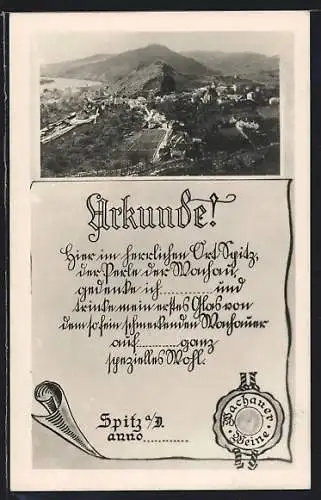 Urkunde!
Hier im herrlichen Ort Spitz,
der Perle der Wachau,
gedenke ich ............ und
trinke mein erstes Glas von
dem so fein schmeckenden Wachauer
auf ......... ganz
spezielles Wohl.
Spitz a/D.
anno ............
Wachauer
Weine